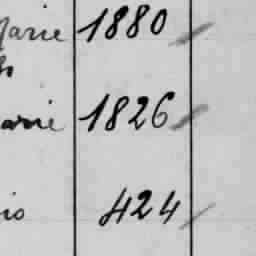 Marie 1880
arie 1826
io 424